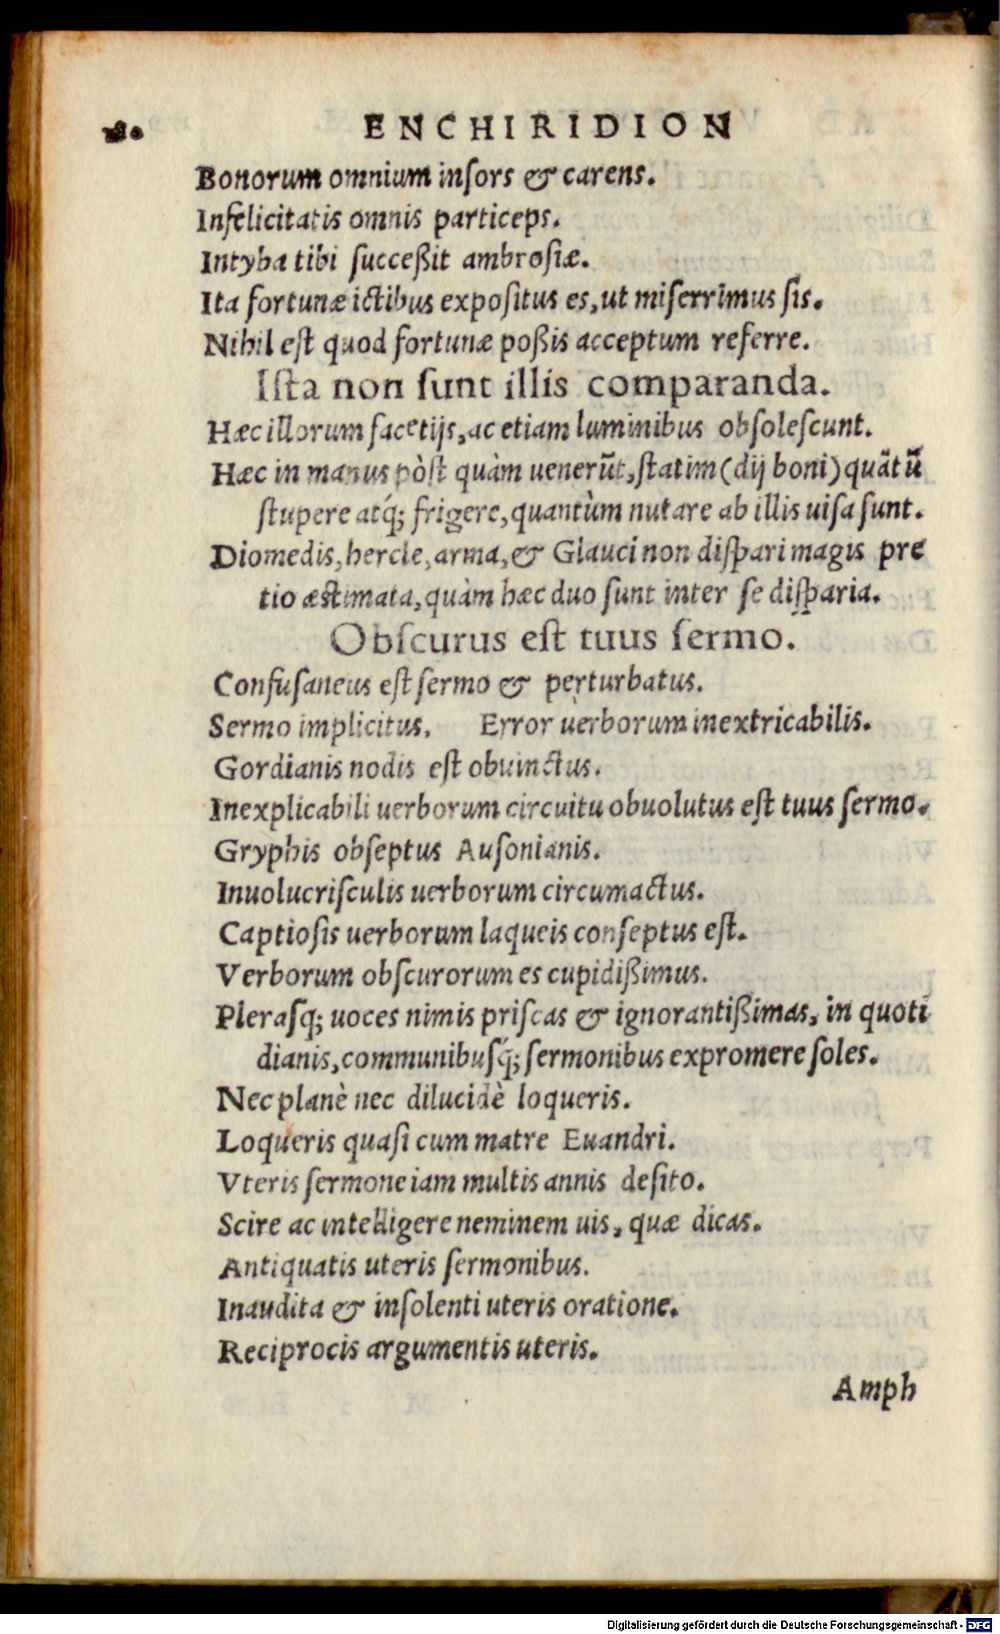 180 ENCHIRIDION
Bonorum omnium insors & carens.
Infelicitatis omnis particeps.
Intyba tibi succeßit ambrosiæ.
Ita fortunæ ictibus expositus es, ut miserrimus sis.
Nihil est quod fortunæ poßis acceptum referre.
Ista non sunt illis comparanda.
Hæc illorum facetijs, ac etiam luminibus obsolescunt.
Hæc in manus pòst quàm uenerũt, statim (dij boni) quãtũ
stupere atq́; frigere, quantùm nutare ab illis uisa sunt.
Diomedis, hercle, arma, & Glauci non dispari magis pre
tio æstimata, quàm hæc duo sunt inter se disparia.
Obscurus est tuus sermo.
Confusaneus est sermo & perturbatus.
Sermo implicitus. Error uerborum inextricabilis.
Gordianis nodis est obuinctus.
Inexplicabili uerborum circuitu obuolutus est tuus sermo.
Gryphis obseptus Ausonianis.
Inuolucrisculis uerborum circumactus.
Captiosis uerborum laqueis conseptus est.
Verborum obscurorum es cupidißimus.
Plerasq; uoces nimis priscas & ignorantißimas, in quoti
dianis, communibusq́; sermonibus expromere soles.
Nec planè nec dilucidè loqueris.
Loqueris quasi cum matre Euandri.
Vteris sermone iam multis annis desito.
Scire ac intelligere neminem uis, quæ dicas.
Antiquatis uteris sermonibus.
Inaudita & insolenti uteris oratione.
Reciprocis argumentis uteris.
Amph
Digitalisierung gefördert durch die Deutsche Forschungsgemeinschaft - DFG